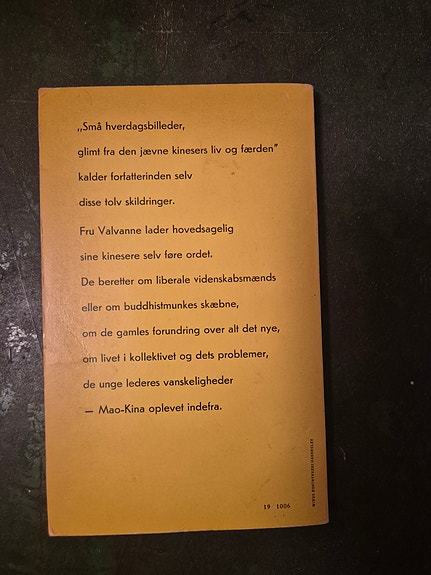 „Små hverdagsbilleder,
glimt fra den jævne kinesers liv og færden"
kalder forfatterinden selv
disse tolv skildringer.
Fru Valvanne lader hovedsagelig
sine kinesere selv føre ordet.
De beretter om liberale videnskabsmænds
eller om buddhistmunkes skæbne,
om de gamles forundring over alt det nye,
om livet i kollektivet og dets problemer,
de unge lederes vanskeligheder
— Mao-Kina oplevet indefra.
19 1006